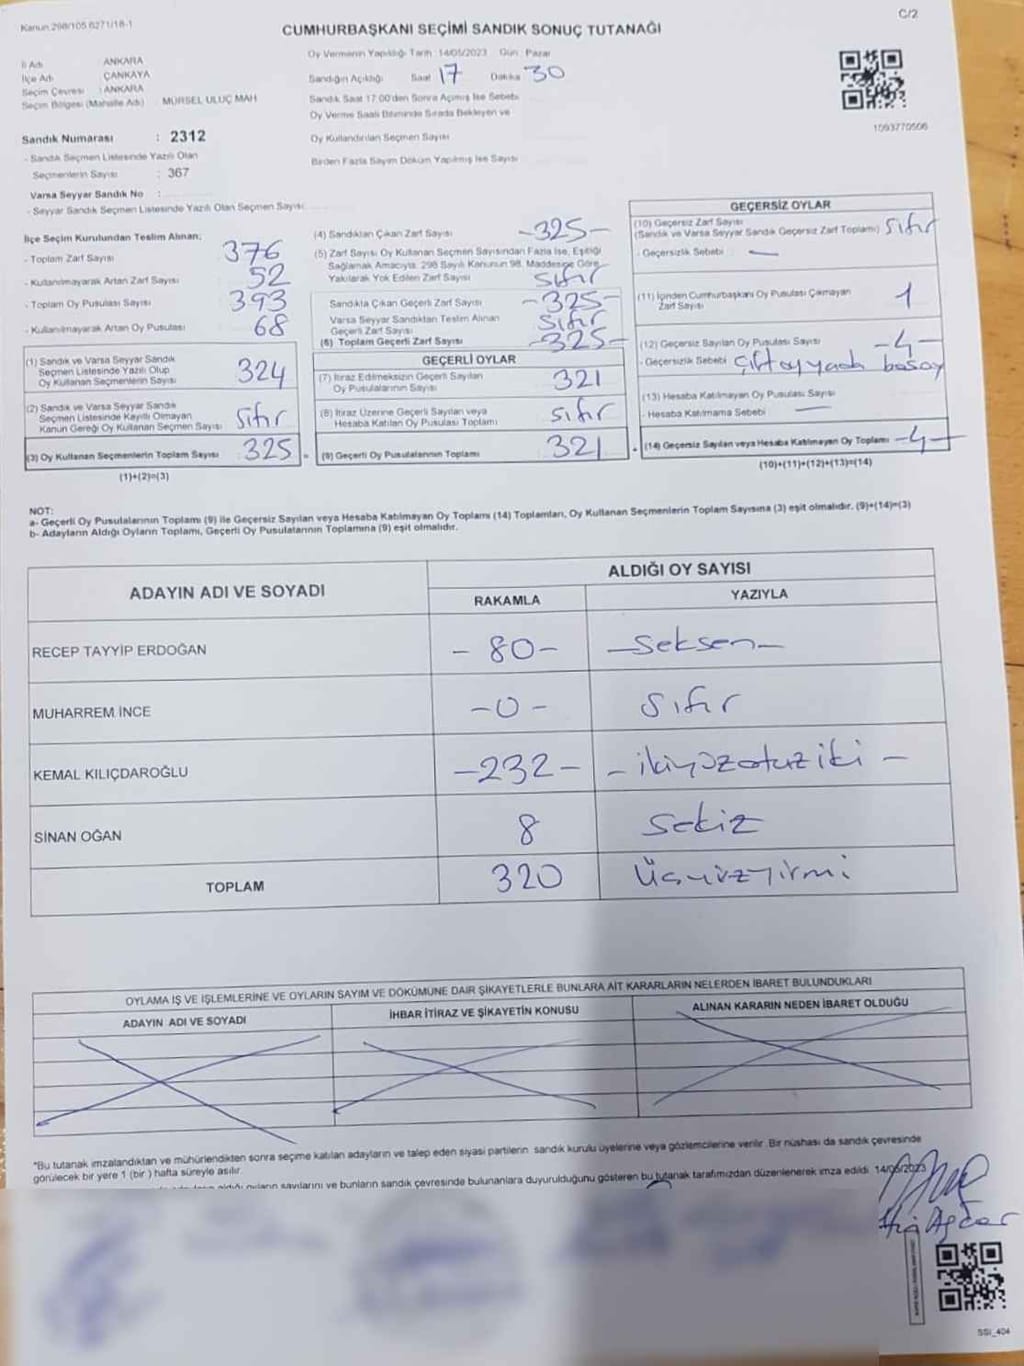 Kanun 298/105 6271/18-1
C/2
CUMHURBAŞKANI SEÇİMİ SANDIK SONUÇ TUTANAĞI
İl Adı : ANKARA
İlçe Adı : ÇANKAYA
Seçim Çevresi : ANKARA
Seçim Bölgesi (Mahalle Adı) : MÜRSEL ULUÇ MAH
Sandık Numarası : 2312
- Sandık Seçmen Listesinde Yazılı Olan
Seçmenlerin Sayısı : 367
Varsa Seyyar Sandık No :
- Seyyar Sandık Seçmen Listesinde Yazılı Olan Seçmen Sayısı
Oy Vermenin Yapıldığı Tarih : 14/05/2023 Gün : Pazar
Sandığın Açıldığı Saat 17 Dakika 30
Sandık Saat 17:00'den Sonra Açılmış İse Sebebi
Oy Verme Saati Bitiminde Sırada Bekleyen ve
Oy Kullandırılan Seçmen Sayısı
Birden Fazla Sayım Döküm Yapılmış İse Sayısı
1093770506
İlçe Seçim Kurulundan Teslim Alınan:
- Toplam Zarf Sayısı 376
- Kullanılmayarak Artan Zarf Sayısı 52
- Toplam Oy Pusulası Sayısı 393
- Kullanılmayarak Artan Oy Pusulası 68
(1) Sandık ve Varsa Seyyar Sandık
Seçmen Listesinde Yazılı Olup
Oy Kullanan Seçmenlerin Sayısı 324
(2) Sandık ve Varsa Seyyar Sandık
Seçmen Listesinde Kayıtlı Olmayan
Kanun Gereği Oy Kullanan Seçmen Sayısı sıfır
(3) Oy Kullanan Seçmenlerin Toplam Sayısı 325
(1)+(2)=(3)
(4) Sandıktan Çıkan Zarf Sayısı -325-
(5) Zarf Sayısı Oy Kullanan Seçmen Sayısından Fazla İse, Eşitliği
Sağlamak Amacıyla, 298 Sayılı Kanunun 98. Maddesine Göre
Yakılarak Yok Edilen Zarf Sayısı sıfır
Sandıkta Çıkan Geçerli Zarf Sayısı -325-
Varsa Seyyar Sandıktan Teslim Alınan
Geçerli Zarf Sayısı sıfır
(6) Toplam Geçerli Zarf Sayısı -325-
GEÇERLİ OYLAR
(7) İtiraz Edilmeksizin Geçerli Sayılan
Oy Pusulalarının Sayısı 321
(8) İtiraz Üzerine Geçerli Sayılan veya
Hesaba Katılan Oy Pusulası Toplamı sıfır
= (9) Geçerli Oy Pusulalarının Toplamı 321
GEÇERSİZ OYLAR
(10) Geçersiz Zarf Sayısı
(Sandık ve Varsa Seyyar Sandık Geçersiz Zarf Toplamı) sıfır
- Geçersizlik Sebebi : —
(11) İçinden Cumhurbaşkanı Oy Pusulası Çıkmayan
Zarf Sayısı 1
(12) Geçersiz Sayılan Oy Pusulası Sayısı -4-
- Geçersizlik Sebebi Çift oy yada boş oy
(13) Hesaba Katılmayan Oy Pusulası Sayısı
- Hesaba Katılmama Sebebi —
+ (14) Geçersiz Sayılan veya Hesaba Katılmayan Oy Toplamı -4-
(10)+(11)+(12)+(13)=(14)
NOT:
a- Geçerli Oy Pusulalarının Toplamı (9) ile Geçersiz Sayılan veya Hesaba Katılmayan Oy Toplamı (14) Toplamları, Oy Kullanan Seçmenlerin Toplam Sayısına (3) eşit olmalıdır. (9)+(14)=(3)
b- Adayların Aldığı Oyların Toplamı, Geçerli Oy Pusulalarının Toplamına (9) eşit olmalıdır.
ADAYIN ADI VE SOYADI
ALDIĞI OY SAYISI
RAKAMLA YAZIYLA
RECEP TAYYİP ERDOĞAN -80- -seksen-
MUHARREM İNCE -0- sıfır
KEMAL KILIÇDAROĞLU -232- -ikiyüzotuziki-
SİNAN OĞAN 8 sekiz
TOPLAM 320 Üçyüzyirmi
OYLAMA İŞ VE İŞLEMLERİNE VE OYLARIN SAYIM VE DÖKÜMÜNE DAİR ŞİKAYETLERLE BUNLARA AİT KARARLARIN NELERDEN İBARET BULUNDUKLARI
ADAYIN ADI VE SOYADI İHBAR İTİRAZ VE ŞİKAYETİN KONUSU ALINAN KARARIN NEDEN İBARET OLDUĞU
*Bu tutanak imzalandıktan ve mühürlendikten sonra seçime katılan adayların ve talep eden siyasi partilerin sandık kurulu üyelerine veya gözlemcilerine verilir. Bir nüshası da sandık çevresinde
görülecek bir yere 1 (bir) hafta süreyle asılır.
aldığı oyların sayılarını ve bunların sandık çevresinde bulunanlara duyurulduğunu gösteren bu tutanak tarafımızdan düzenlenerek imza edildi. 14/05/2023
SSİ_404